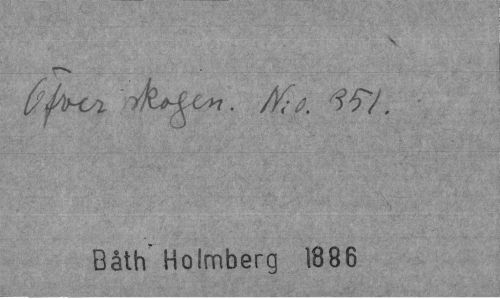 Öfver skogen. N:o. 351.
Båth Holmberg 1886